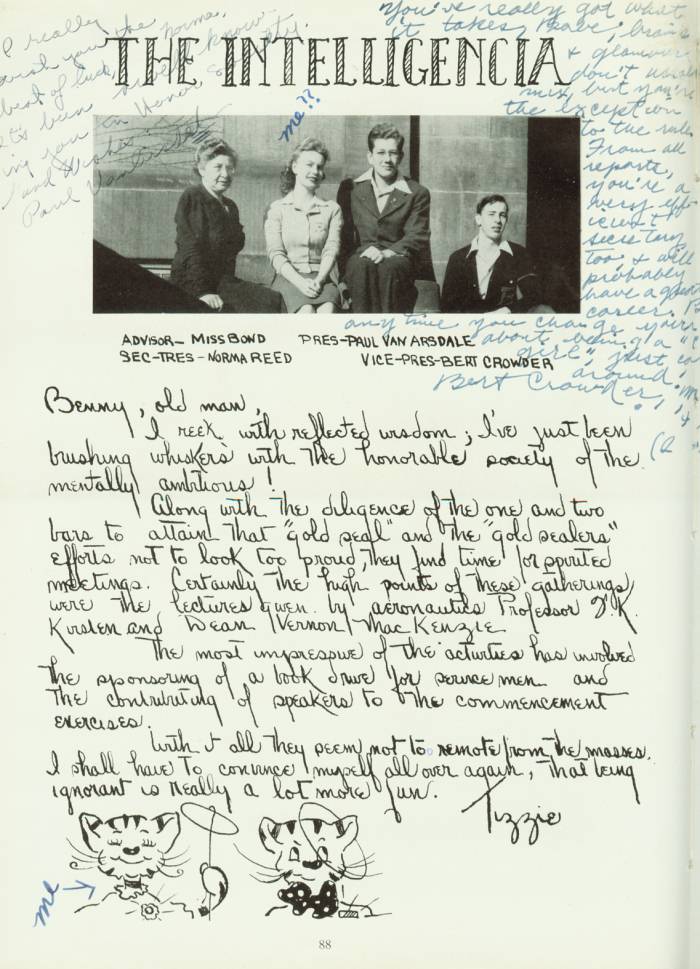 THE INTELLIGENCIA
I really
wish you the Norma,
best of luck
It's been swell know-
ing you in Honor Society.
Paul VanArsdale
You've really got what
it takes, brains
& glamour
don't usually
mix, but you're
the exception
to the rule.
From all
reports,
you're a
very effi-
cient
secretary
too, & will
probably
have a great
career.
any time you change your
about being a "C
girl", just
around.
Bert Crowder.
me??
ADVISOR- MISS BOND PRES-PAUL VAN ARSDALE
SEC-TRES-NORMA REED VICE-PRES-BERT CROWDER
Benny, old man,
I reek with reflected wisdom; I've just been
brushing whiskers with the honorable society of the
mentally ambitious!
Along with the diligence of the one and two
bars to attain that "gold seal" and the "gold sealers"
efforts not to look too proud, they find time for spirited
meetings. Certainly the high points of these gatherings
were the lectures given by aeronautics Professor F.K.
Kirsten and Dean (Vernon) MacKenzie
The most impressive of the activities has involved
the sponsoring of a book drive for service men and
the contributing of speakers to the commencement
exercises.
With it all they seem not too remote from the masses.
I shall have to convince myself all over again, that being
ignorant is really a lot more fun.
Tizzie
me
88